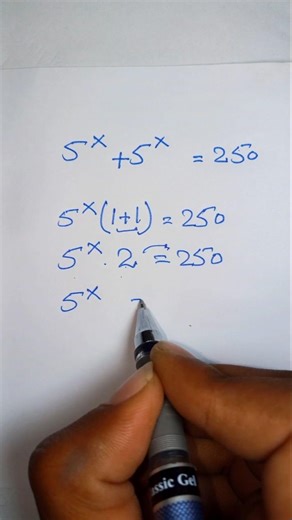 5^x + 5^x = 250
5^x (1+1) = 250
5^x . 2 = 250
5^x
ssic Gel